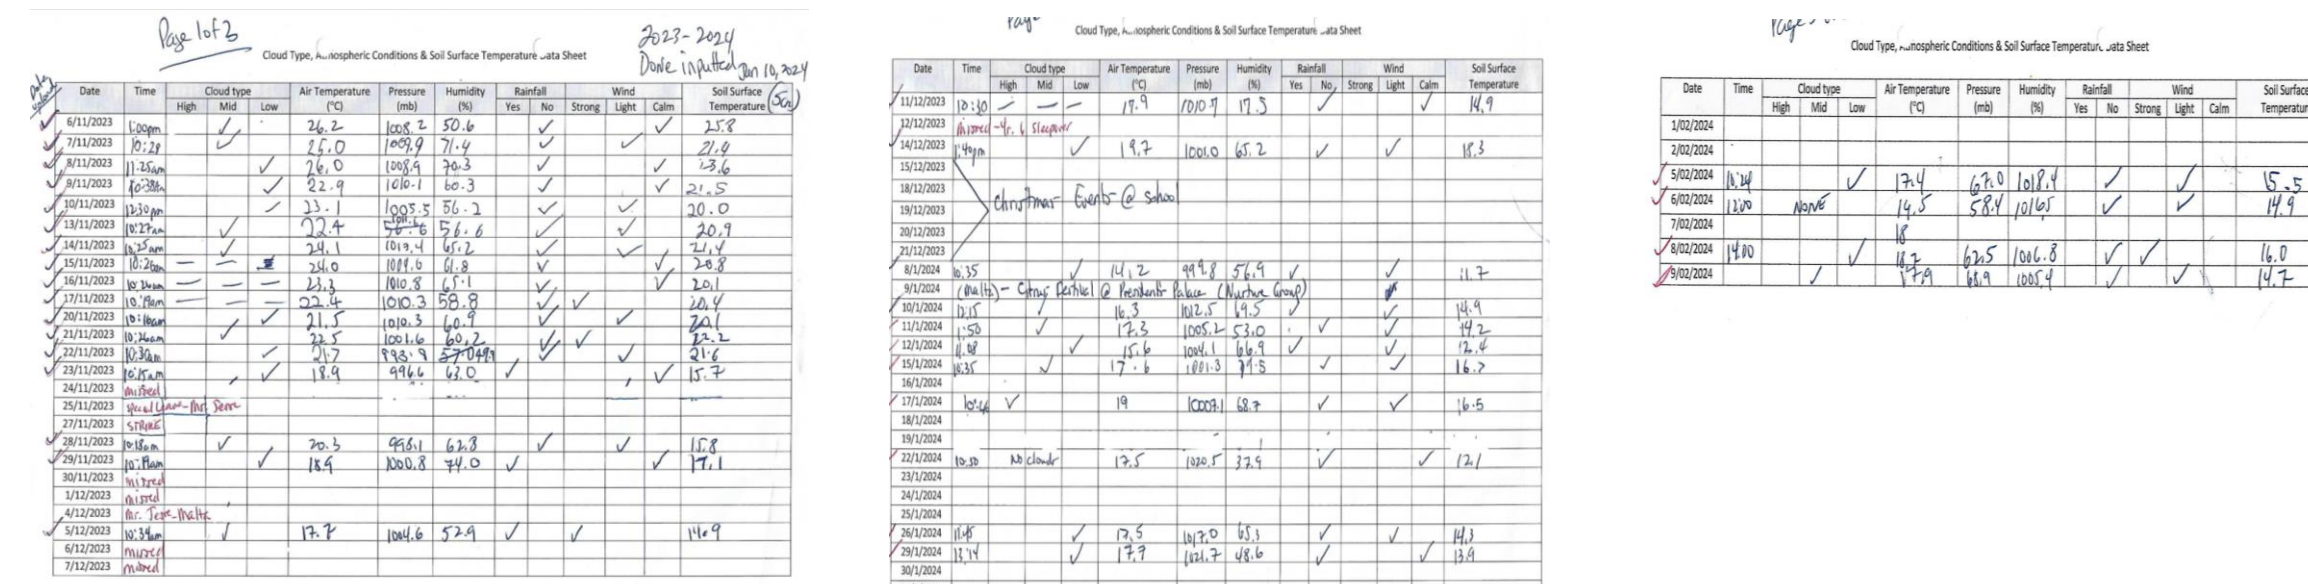 Page 1 of 3
2023-2024
Done inputted Jan 10, 2024
Cloud Type, Atmospheric Conditions & Soil Surface Temperature Data Sheet
Date Time Cloud type Air Temperature Pressure Humidity Rainfall Wind Soil Surface
High Mid Low (°C) (mb) (%) Yes No Strong Light Calm Temperature (5cm)
6/11/2023 1:00pm ✓ 26.2 1008.2 50.6 ✓ ✓ 25.8
7/11/2023 10:28 ✓ 25.0 1009.9 71.4 ✓ ✓ 21.9
8/11/2023 11:25am ✓ 26.0 1008.9 70.3 ✓ ✓ 23.6
9/11/2023 10:38am ✓ 22.9 1010.1 60.3 ✓ ✓ 21.5
10/11/2023 12:30pm ✓ 23.1 1005.5 56.2 ✓ ✓ 20.0
13/11/2023 10:27am ✓ 22.4 56.6 ✓ ✓ 20.9
14/11/2023 10:25am ✓ 24.1 1017.4 65.2 ✓ ✓ 21.4
15/11/2023 10:26am — — 24.0 1009.6 61.8 ✓ ✓ 20.8
16/11/2023 10:26am — — — 23.3 1010.8 65.1 ✓ ✓ 20.1
17/11/2023 10:19am — — — 22.4 1010.3 58.8 ✓ ✓ 20.4
20/11/2023 10:16am ✓ 21.5 1010.3 60.9 ✓ ✓ 20.1
21/11/2023 10:26am ✓ 22.5 1001.6 60.2 ✓ ✓ 22.2
22/11/2023 10:30am ✓ 21.7 993.9 ✓ ✓ 21.6
23/11/2023 10:15am ✓ 18.9 996.6 63.0 ✓ ✓ 15.7
24/11/2023 missed
25/11/2023 special Leave-Mr.
27/11/2023 STRIKE
28/11/2023 10:18am ✓ 20.3 998.1 62.8 ✓ ✓ 15.8
29/11/2023 10:19am ✓ 18.9 1000.8 74.0 ✓ ✓ 17.1
30/11/2023 missed
1/12/2023 missed
4/12/2023 Mr. -Malta
5/12/2023 10:34am ✓ 17.7 1004.6 52.9 ✓ ✓ 14.9
6/12/2023 missed
7/12/2023 missed
Page
Cloud Type, Atmospheric Conditions & Soil Surface Temperature Data Sheet
Date Time Cloud type Air Temperature Pressure Humidity Rainfall Wind Soil Surface
High Mid Low (°C) (mb) (%) Yes No Strong Light Calm Temperature
11/12/2023 10:30 — — — 17.9 1010.7 17.5 ✓ ✓ 14.9
12/12/2023 missed-Yr. 6 Sleepover
14/12/2023 1:40pm ✓ 19.7 1001.0 65.2 ✓ ✓ 18.3
15/12/2023
18/12/2023 Christmas Events @ school
19/12/2023
20/12/2023
21/12/2023
8/1/2024 10:35 ✓ 14.2 999.8 56.9 ✓ ✓ 11.7
9/1/2024 (Malta) - Citrus Festival @ President's Palace (Nurture Group)
10/1/2024 12:15 ✓ 16.3 1012.5 69.5 ✓ ✓ 14.9
11/1/2024 1:50 ✓ 17.3 1005.2 53.0 ✓ ✓ 14.2
12/1/2024 11:08 ✓ 15.6 1004.1 66.9 ✓ ✓ 12.4
15/1/2024 10:35 ✓ 17.6 1001.3 ✓ ✓ 16.2
16/1/2024
17/1/2024 ✓ 19 68.7 ✓ ✓ 16.5
18/1/2024
19/1/2024
22/1/2024 10:50 No clouds 17.5 1020.5 37.9 ✓ ✓ 12.1
23/1/2024
24/1/2024
25/1/2024
26/1/2024 11:45 ✓ 17.5 1017.0 65.3 ✓ ✓ 14.3
29/1/2024 13:14 ✓ 17.7 1021.7 48.6 ✓ ✓ 13.9
30/1/2024
Cloud Type, Atmospheric Conditions & Soil Surface Temperature Data Sheet
Date Time Cloud type Air Temperature Pressure Humidity Rainfall Wind Soil Surface
High Mid Low (°C) (mb) (%) Yes No Strong Light Calm Temperatur
1/02/2024
2/02/2024
5/02/2024 10:24 ✓ 17.4 67.0 1018.4 ✓ ✓ 15.5
6/02/2024 12:00 NONE 14.5 58.4 1016.5 ✓ ✓ 14.9
7/02/2024 18
8/02/2024 14:00 ✓ 18.2 62.5 1006.8 ✓ ✓ 16.0
9/02/2024 ✓ 17.9 68.9 1005.4 ✓ ✓ 14.7